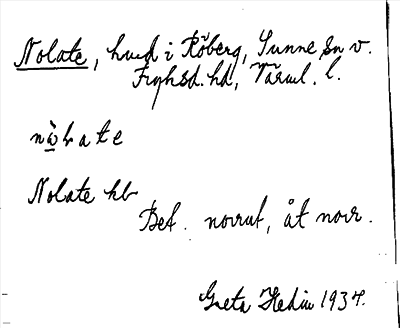 Nolate, hmd i Röberg, Sunne sn v.
Fryksd. hd, Värml. l.
nⱥ̀ɫate
Nolate hb
Bet. norrut, åt norr.
Greta Hedin 1934.